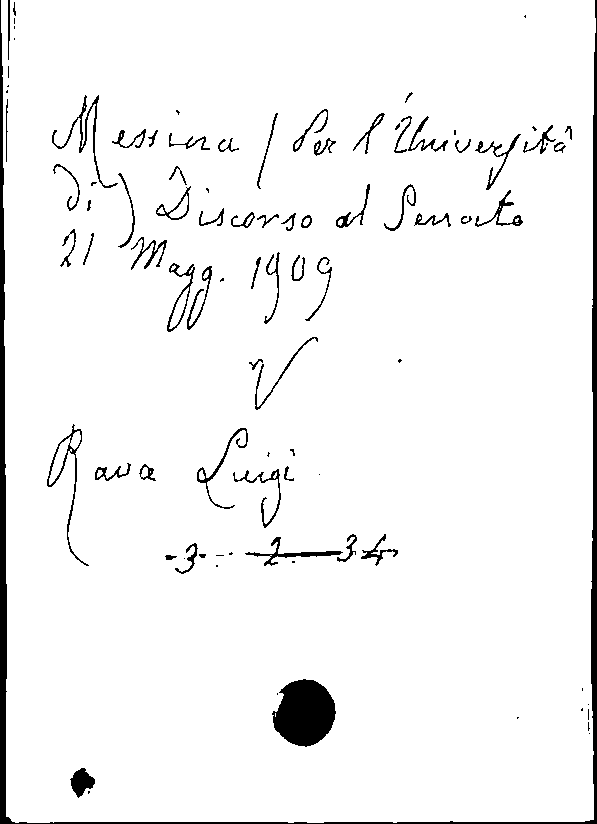 Messina / Per l'Università
di) Discorso al Senato
21 Magg. 1909
V
Rava Luigi
3 2 34